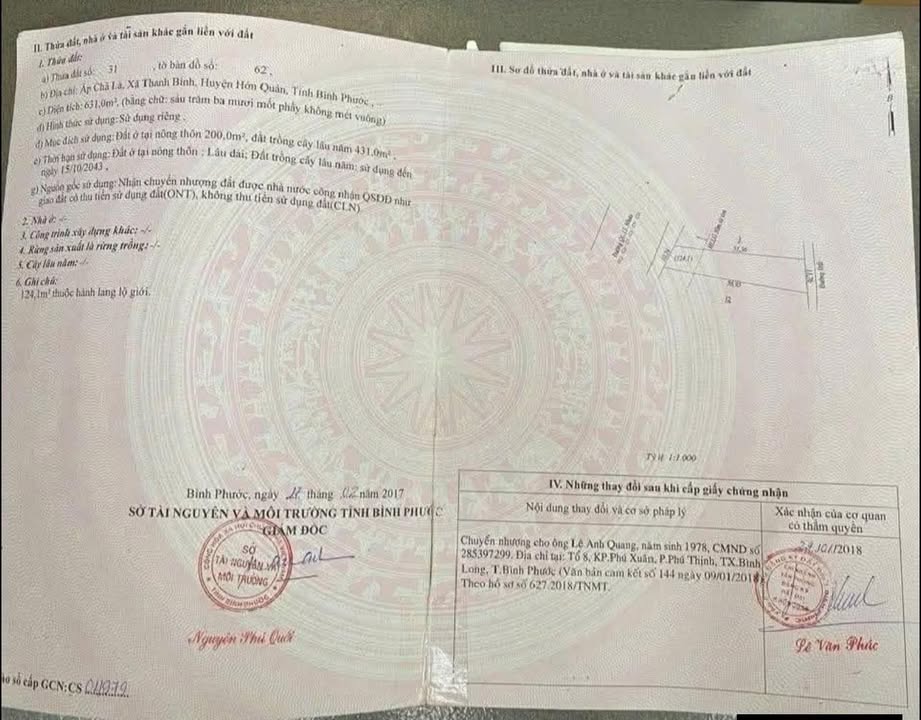 II. Thửa đất, nhà ở và tài sản khác gắn liền với đất
1. Thửa đất:
a) Thửa đất số: 31 , tờ bản đồ số: 62 ,
b) Địa chỉ: Ấp Chà Là, Xã Thanh Bình, Huyện Hớn Quản, Tỉnh Bình Phước, .
c) Diện tích: 631,0m², (bằng chữ: sáu trăm ba mươi mốt phẩy không mét vuông)
d) Hình thức sử dụng: Sử dụng riêng .
đ) Mục đích sử dụng: Đất ở tại nông thôn 200,0m², đất trồng cây lâu năm 431,0m² .
e) Thời hạn sử dụng: Đất ở tại nông thôn : Lâu dài; Đất trồng cây lâu năm: sử dụng đến
ngày 15/10/2043 .
g) Nguồn gốc sử dụng: Nhận chuyển nhượng đất được nhà nước công nhận QSDĐ như
giao đất có thu tiền sử dụng đất(ONT), không thu tiền sử dụng đất(CLN)
2. Nhà ở: -/-
3. Công trình xây dựng khác: -/-
4. Rừng sản xuất là rừng trồng: -/-
5. Cây lâu năm: -/-
6. Ghi chú:
124,1m² thuộc hành lang lộ giới.
Bình Phước, ngày 17 tháng 02 năm 2017
SỞ TÀI NGUYÊN VÀ MÔI TRƯỜNG TỈNH BÌNH PHƯỚC
GIÁM ĐỐC
SỞ
TÀI NGUYÊN VÀ
MÔI TRƯỜNG
TỈNH BÌNH PHƯỚC
Nguyễn Phú Quới
vào sổ cấp GCN: CS 04979
III. Sơ đồ thửa đất, nhà ở và tài sản khác gắn liền với đất
B
(124,1)
31
32
Tỷ lệ 1:1.000
IV. Những thay đổi sau khi cấp giấy chứng nhận
Nội dung thay đổi và cơ sở pháp lý
Xác nhận của cơ quan
có thẩm quyền
Chuyển nhượng cho ông Lê Anh Quang, năm sinh 1978, CMND số
285397299. Địa chỉ tại: Tổ 8, KP.Phú Xuân, P.Phú Thịnh, TX.Bình
Long, T.Bình Phước (Văn bản cam kết số 144 ngày 09/01/2018)
Theo hồ sơ số 627.2018/TNMT.
/01/2018
Lê Văn Phúc